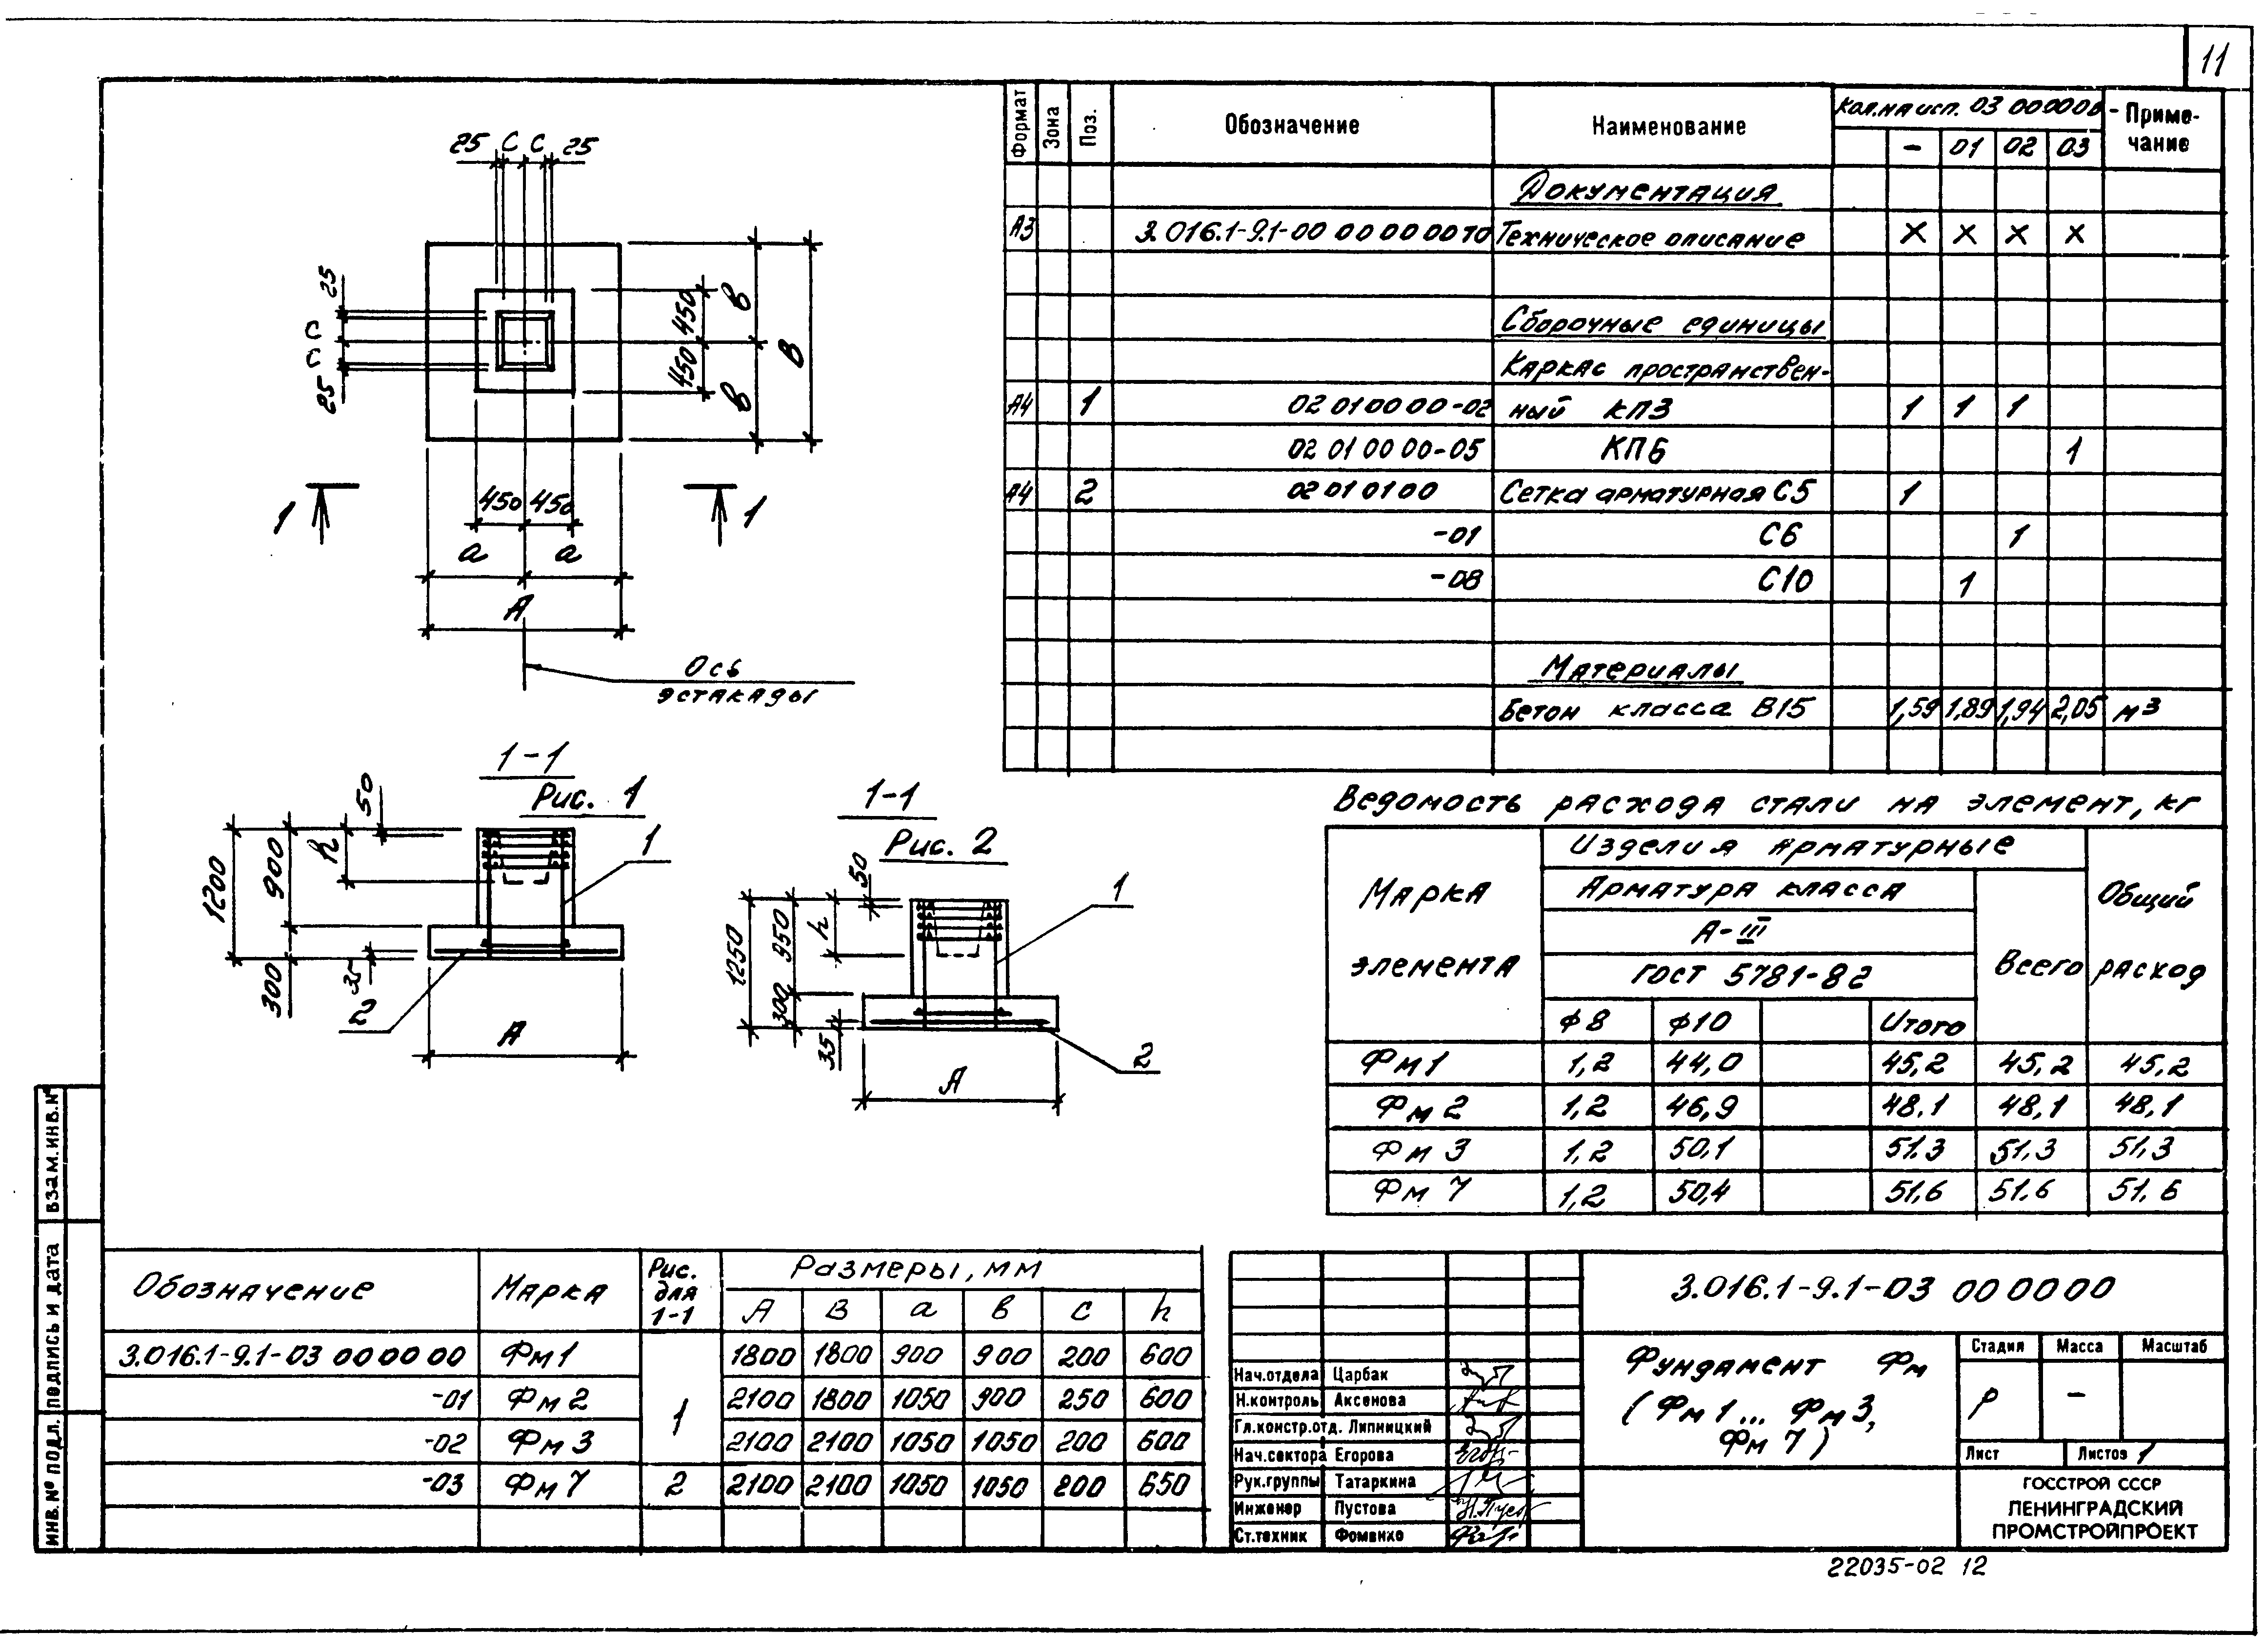 11
Формат Зона Поз. Обозначение Наименование Кол. на исп. 03 000000 - Приме-
чание
- 01 02 03
Документация
А3 3.016.1-9.1-00 00 00 00ТО Техническое описание X X X X
Сборочные единицы
Каркас пространствен-
А4 1 02 01 00 00-02 ный КП3 1 1 1
02 01 00 00-05 КП6 1
А4 2 02 01 01 00 Сетка арматурная С5 1
-01 С6 1
-08 С10 1
Материалы
Бетон класса В15 1,59 1,89 1,94 2,05 м3
25 С С 25
25
С
С
25
450
450
в
в
В
450 450
а а
А
1 1
Ось
эстакады
1-1
Рис. 1
50
h
900
1200
300
35
1
2
А
1-1
Рис. 2
50
h
950
1250
300
35
1
2
А
Ведомость расхода стали на элемент, кг
Марка
элемента
Изделия арматурные
Арматура класса
А-III
ГОСТ 5781-82
Всего
Общий
расход
ф8 ф10 Итого
Фм1 1,2 44,0 45,2 45,2 45,2
Фм2 1,2 46,9 48,1 48,1 48,1
Фм3 1,2 50,1 51.3 51,3 51,3
Фм7 1,2 50,4 51,6 51.6 51,6
Обозначение Марка Рис.
для
1-1
Размеры, мм
А В а в с h
3.016.1-9.1-03 00 00 00 Фм1 1 1800 1800 900 900 200 600
-01 Фм2 2100 1800 1050 900 250 600
-02 Фм3 2100 2100 1050 1050 200 600
-03 Фм7 2 2100 2100 1050 1050 200 650
3.016.1-9.1-03 00 00 00
Фундамент Фм
(Фм1... Фм3,
Фм7)
Стадия Масса Масштаб
Р -
Лист Листов 1
ГОССТРОЙ СССР
ЛЕНИНГРАДСКИЙ
ПРОМСТРОЙПРОЕКТ
Нач.отдела Царбак
Н.контроль Аксенова
Гл.констр.отд. Липницкий
Нач.сектора Егорова
Рук.группы Татаркина
Инженер Пустова
Ст.техник Фоменко
ИНВ.№ ПОДЛ. ПОДПИСЬ И ДАТА ВЗАМ.ИНВ.№
22035-02 12